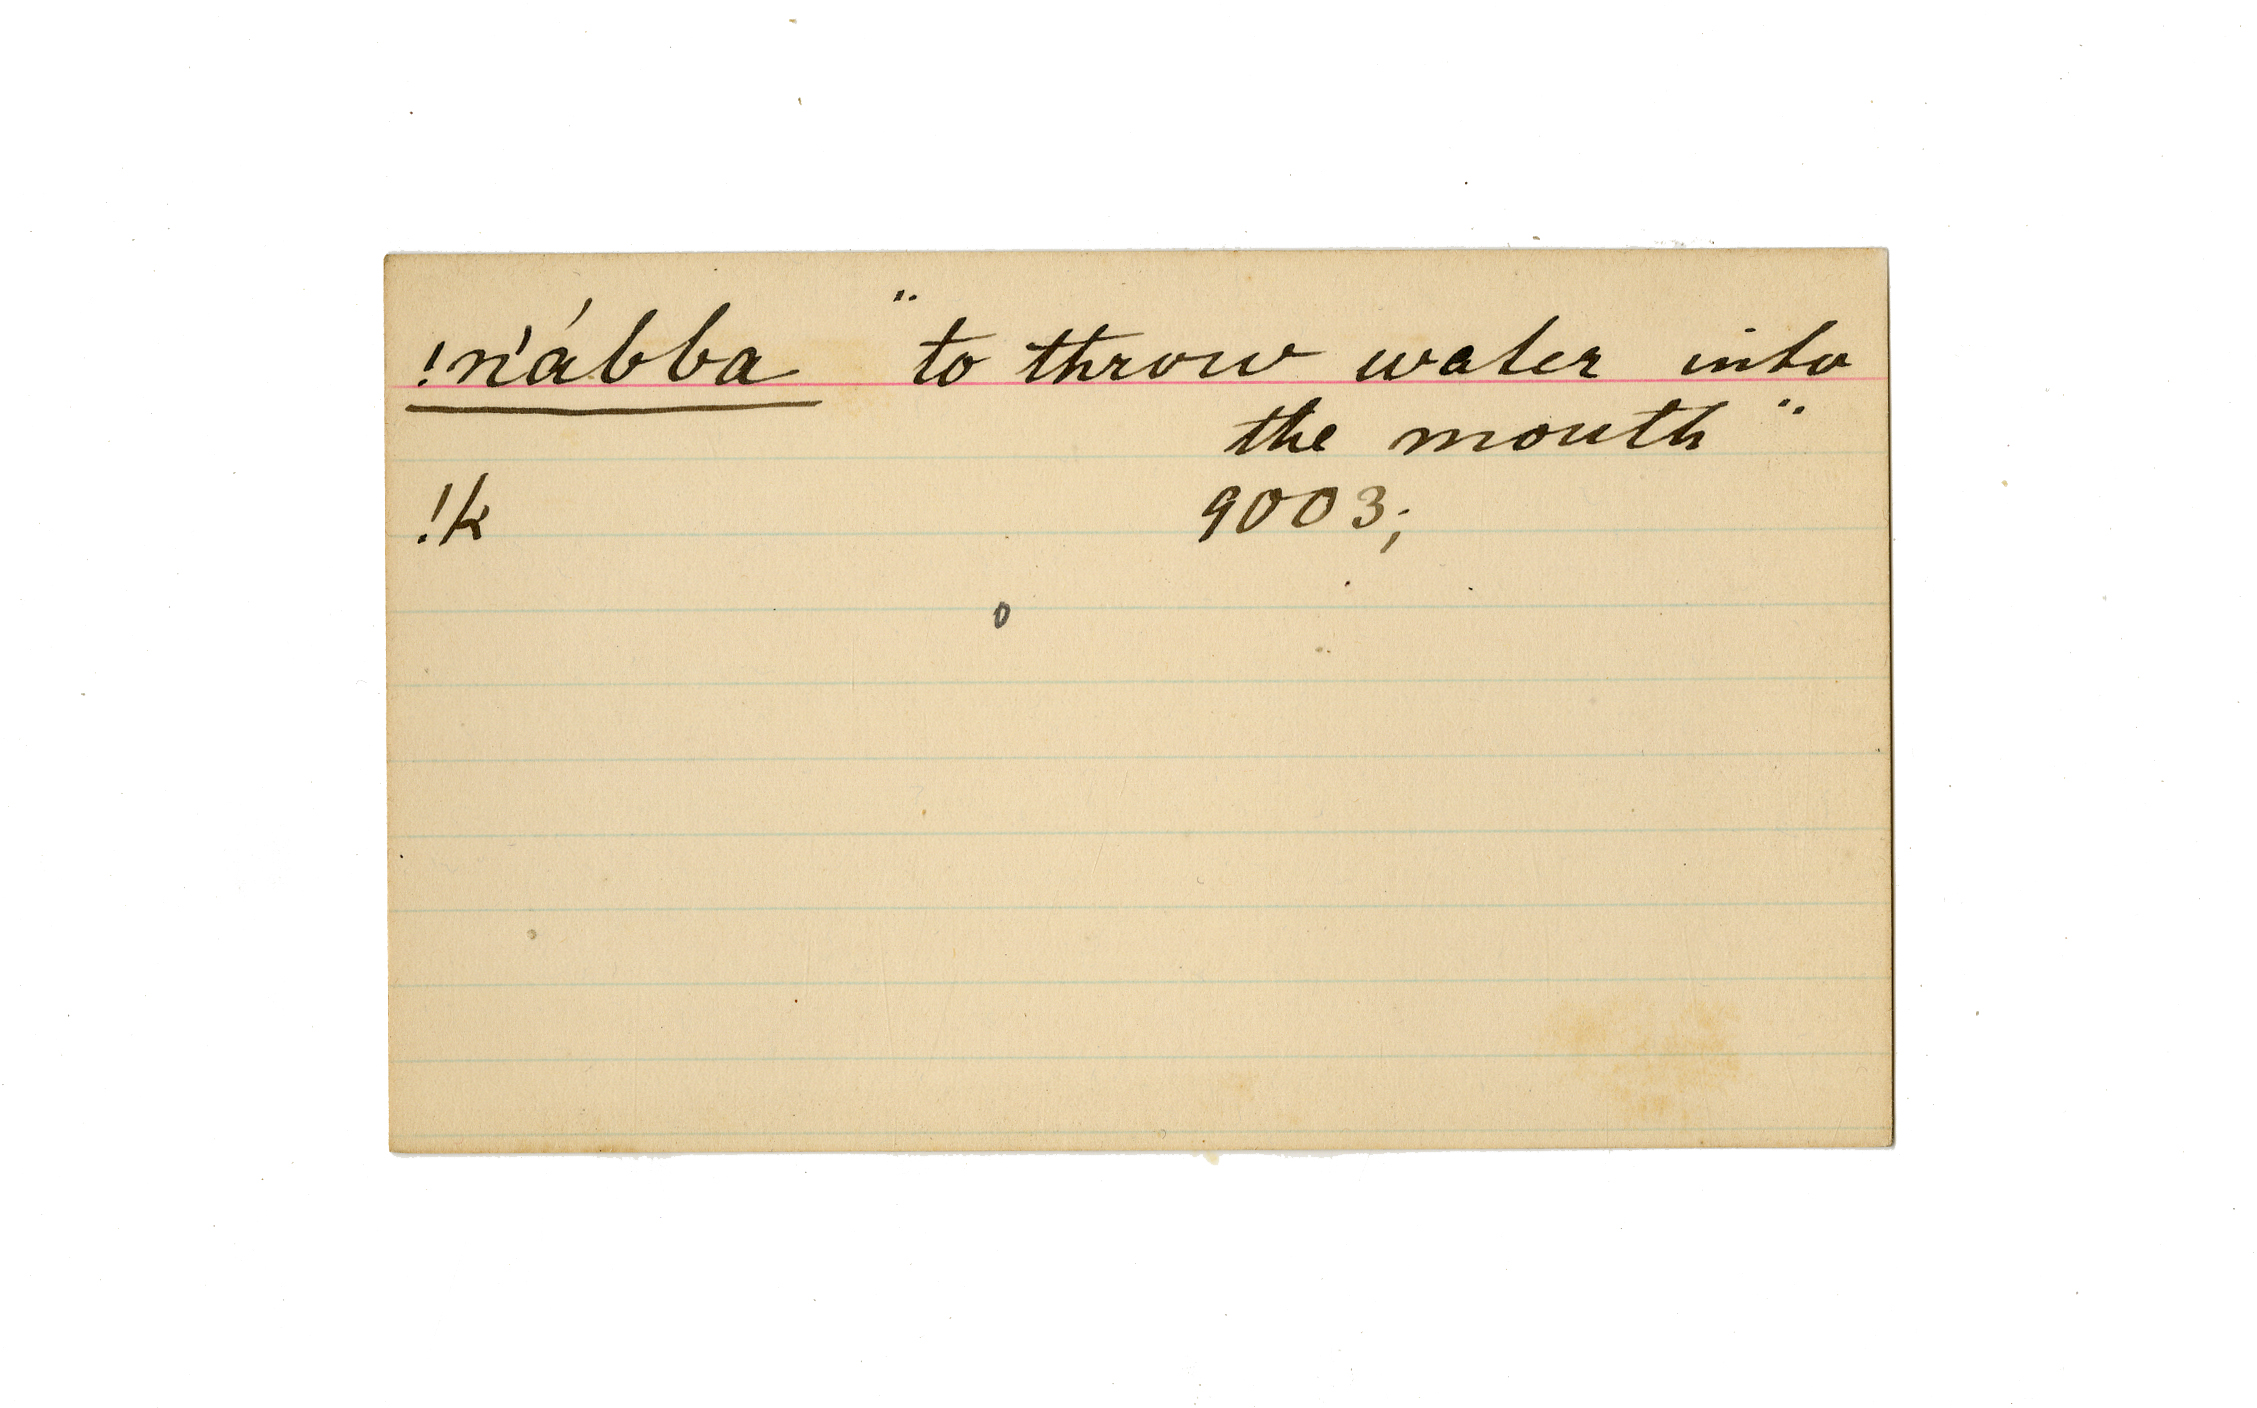 !n'ábba "to throw water into
the mouth"
!k 9003;
0